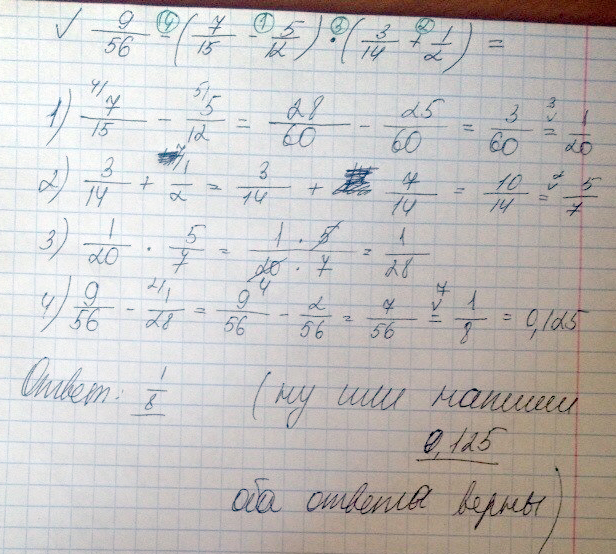 ✓ 9/56 -④ (7/15 -① 5/12) ·③ (3/14 +② 1/2) =
1) 7/15 ⁴⁾ - 5/12 ⁵⁾ = 28/60 - 25/60 = 3/60 =³ 1/20
2) 3/14 + 1/2 ⁷⁾ = 3/14 + 7/14 = 10/14 =² 5/7
3) 1/20 · 5/7 = 1 · 5/20 · 7 4 = 1/28
4) 9/56 - 1/28 ²⁾ = 9/56 - 2/56 = 7/56 =⁷ 1/8 = 0,125
Ответ: 1/8 (ну или напиши
0,125
оба ответа верны)